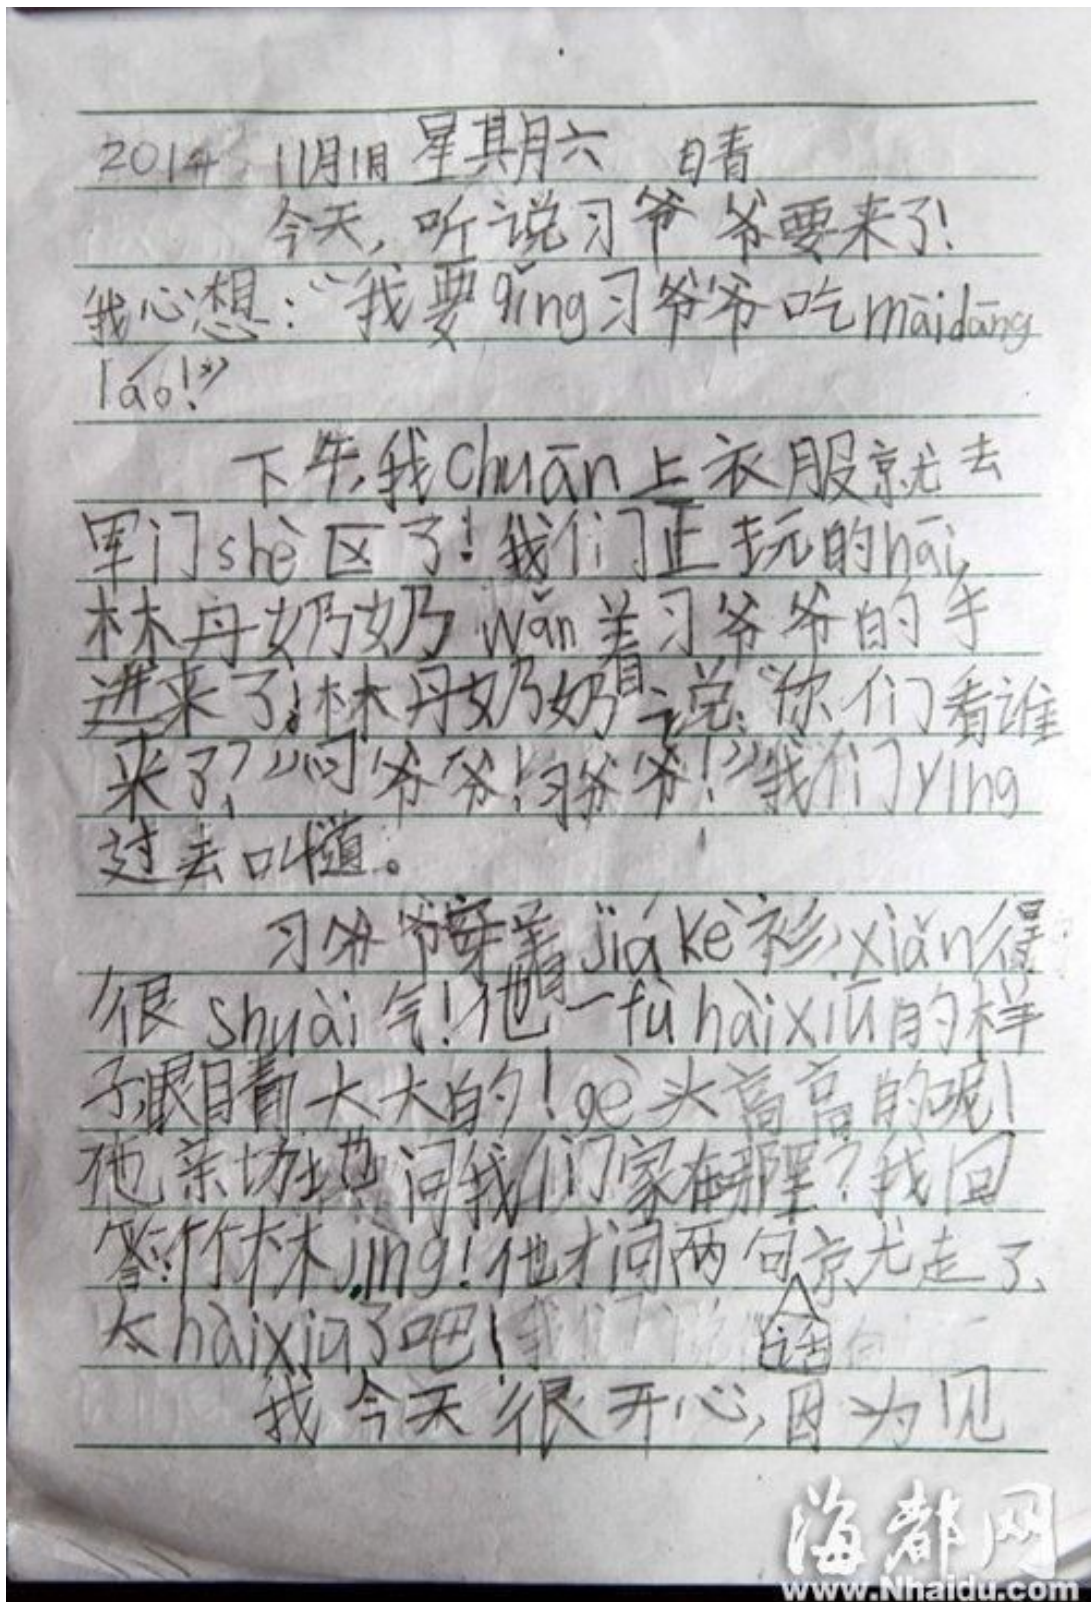 2014 11月1日 星期六 晴
今天,听说习爷爷要来了!
我心想:“我要qǐng习爷爷吃màidāng
láo!”
下午,我chuān上衣服就去
军门shè区了!我们正玩的hāi,
林丹奶奶wǎn着习爷爷的手
进来了!林丹奶奶说:“你们看谁
来了?”“习爷爷!习爷爷!”我们yíng
过去叫道。
习爷爷穿着jiákè衫,xiǎn得
很shuài气!他一fù hàixiū的样
子,眼睛大大的!gè头高高的呢!
他亲切地问我们家在哪里?我回
答:竹林jìng!他才问两句话就走了,
太hàixiū了吧!
我今天很开心,因为见
海都网
www.Nhaidu.com